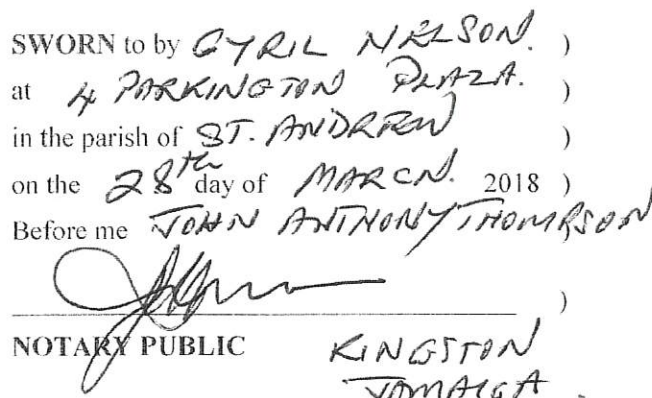 SWORN to by CYRIL NELSON. )
at 4 PARKINGTON PLAZA. )
in the parish of ST. ANDREW )
on the 28th day of MARCH. 2018 )
Before me JOHN ANTHONY THOMPSON )
)
NOTARY PUBLIC KINGSTON
JAMAICA.